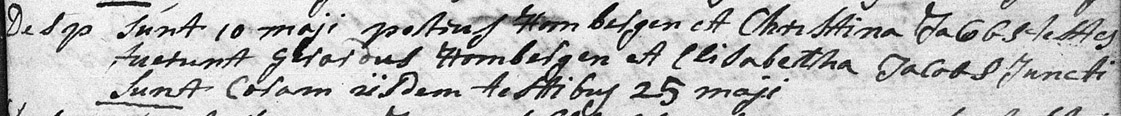 Desp sunt 10 maji petrus Hombergen et Christina Jacobs testes
fuerunt gerardus Hombergen et Elisabetha Jacobs Juncti
sunt Coram iisdem testibus 25 maji